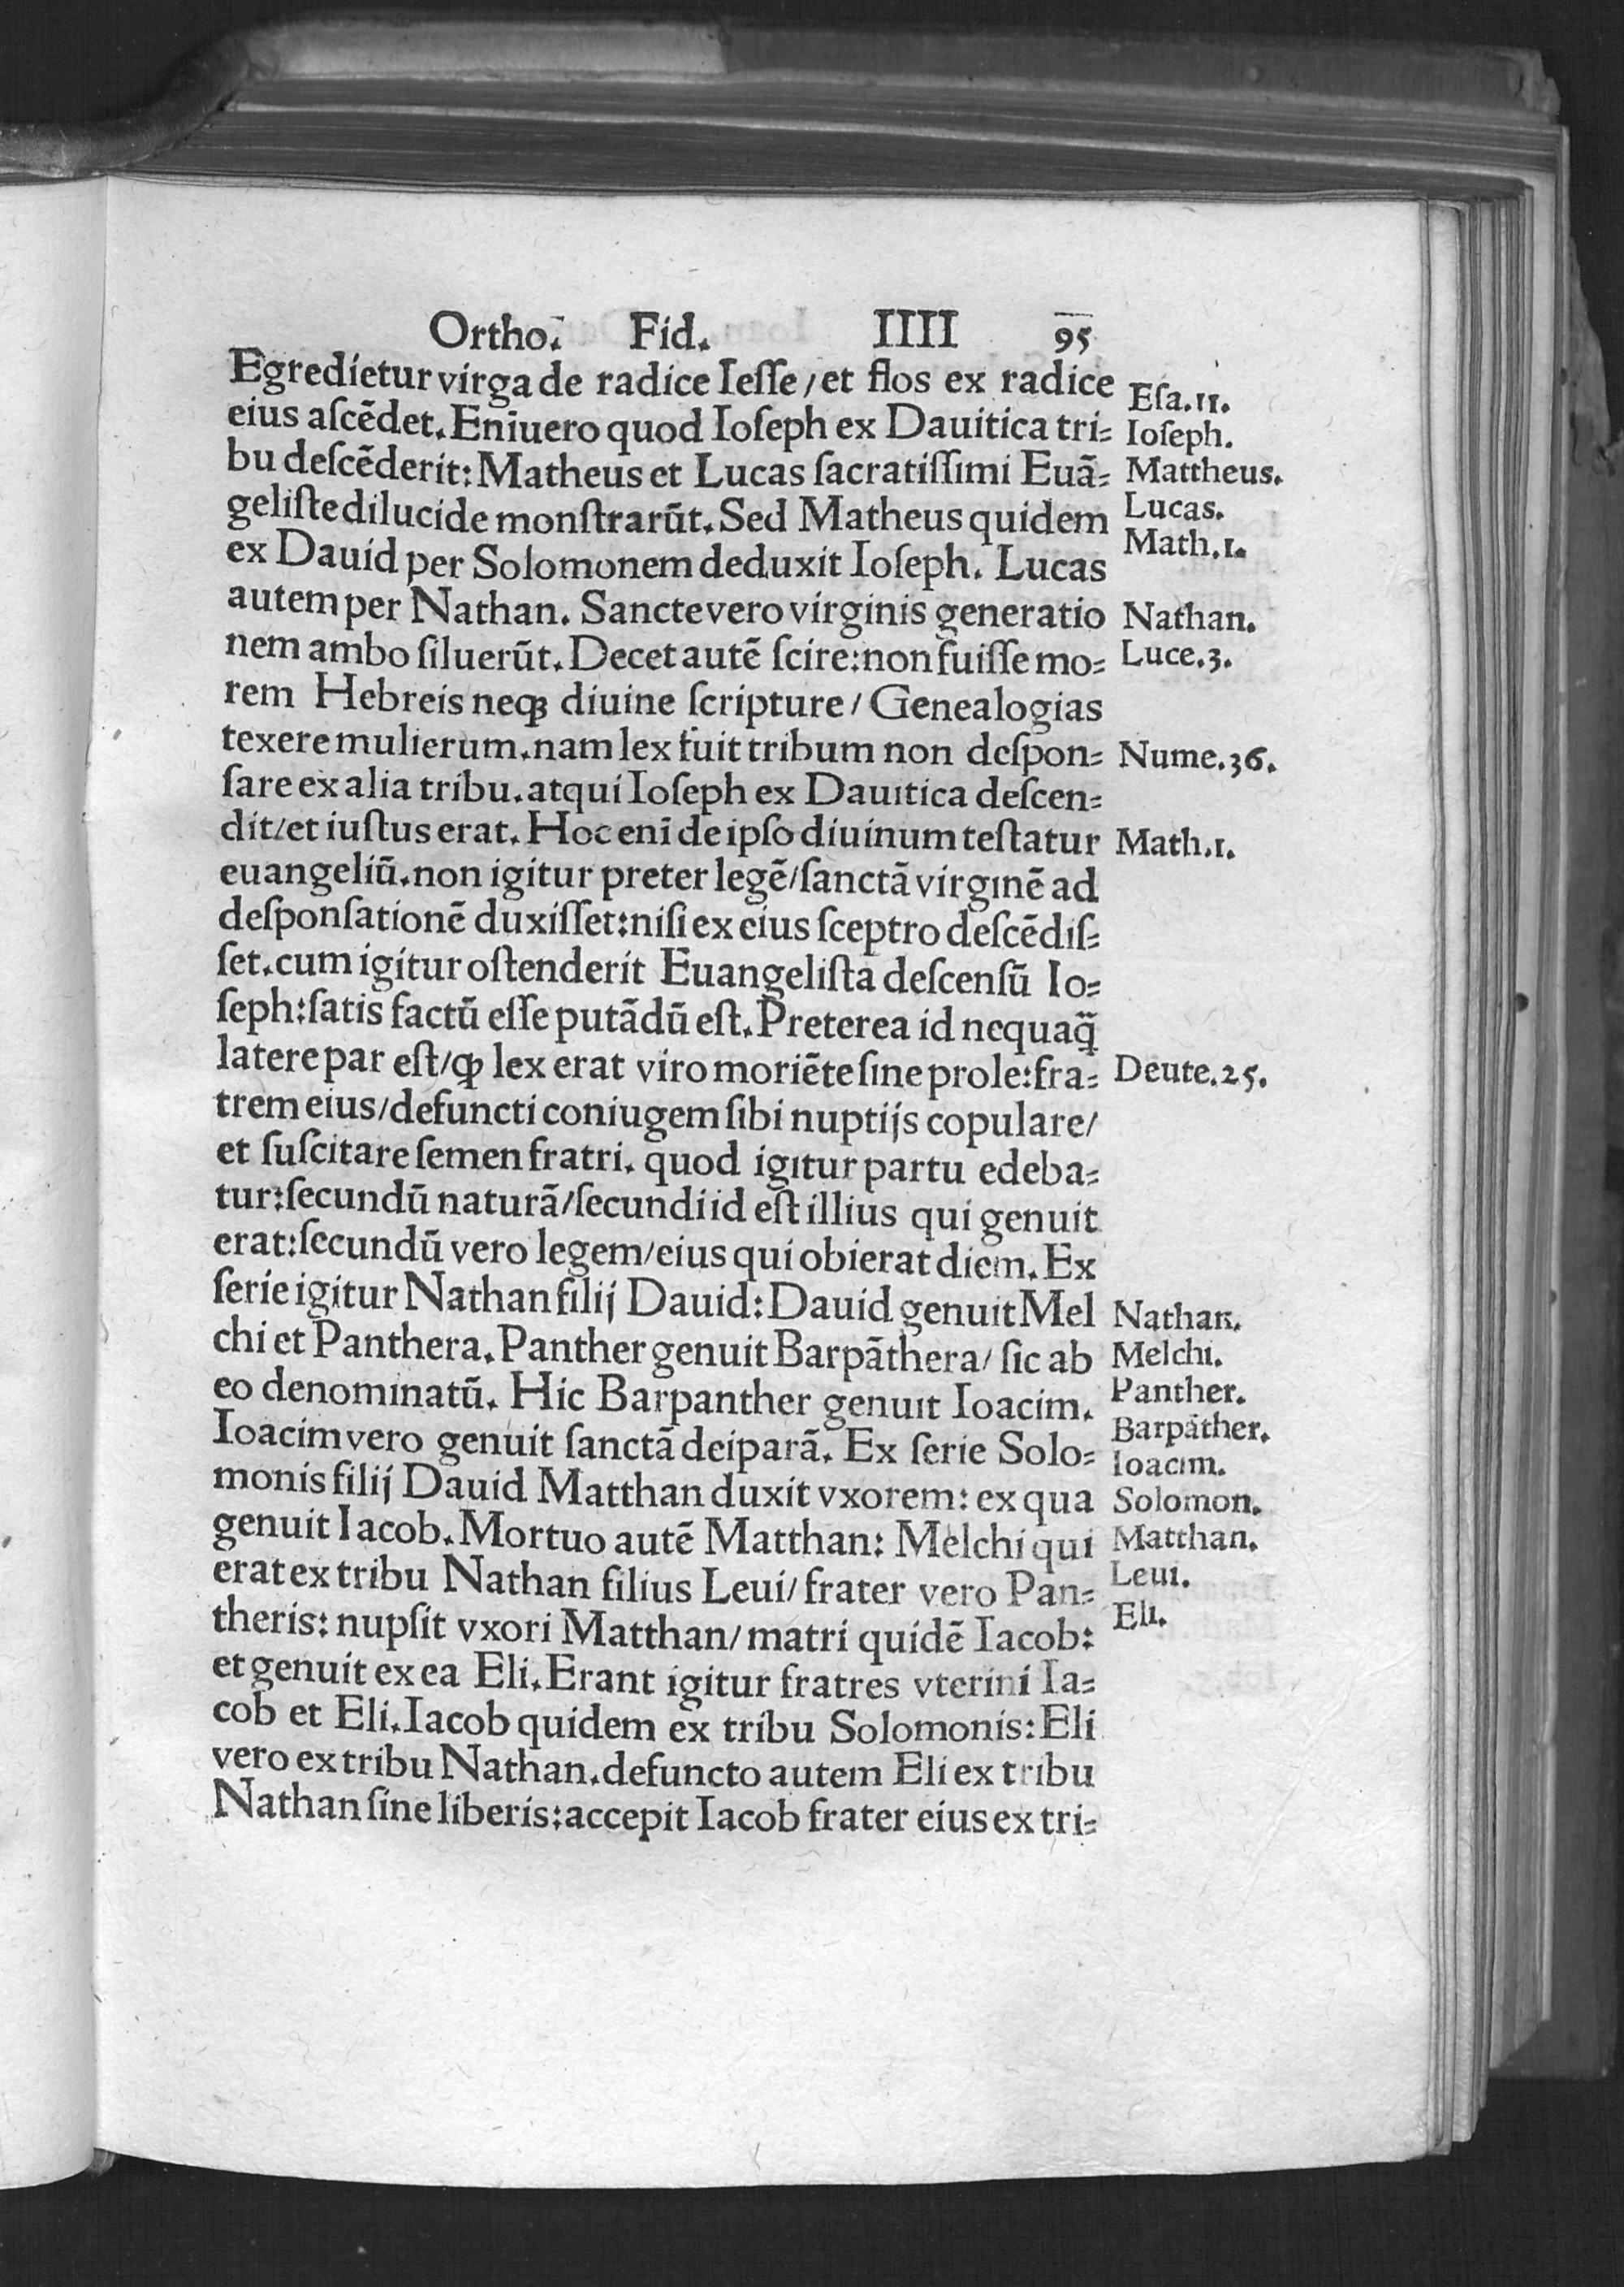 Ortho. Fid. IIII 95
Egredietur virga de radice Ieſſe/et flos ex radice
eius aſcēdet. Enīuero quod Ioſeph ex Dauitica tri⸗
bu deſcēderit: Matheus et Lucas ſacratiſſimi Euā⸗
geliſte dilucide monſtrarūt. Sed Matheus quidem
ex Dauid per Solomonem deduxit Ioſeph. Lucas
autem per Nathan. Sancte vero virginis generatio
nem ambo ſiluerūt. Decet autē ſcire: non fuiſſe mo⸗
rem Hebreis neqꝫ diuine ſcripture/ Genealogias
texere mulierum. nam lex fuit tribum non deſpon⸗
ſare ex alia tribu. atqui Ioſeph ex Dauitica deſcen⸗
dit/et iuſtus erat. Hoc enī de ipſo diuinum teſtatur
euangeliū. non igitur preter legē/ſanctā virginē ad
deſponſationē duxiſſet: niſi ex eius ſceptro deſcēdiſ⸗
ſet. cum igitur oſtenderit Euangeliſta deſcenſū Io⸗
ſeph: ſatis factū eſſe putādū eſt. Preterea id nequaq̄
latere par eſt/ꝙ lex erat viro moriēte ſine prole: fra⸗
trem eius/defuncti coniugem ſibi nuptijs copulare/
et ſuſcitare ſemen fratri. quod igitur partu edeba⸗
tur: ſecundū naturā/ſecundi id eſt illius qui genuit
erat: ſecundū vero legem/eius qui obierat diem. Ex
ſerie igitur Nathan filij Dauid: Dauid genuit Mel
chi et Panthera. Panther genuit Barpāthera/ ſic ab
eo denominatū. Hic Barpanther genuit Ioacim.
Ioacim vero genuit ſanctā deiparā. Ex ſerie Solo⸗
monis filij Dauid Matthan duxit vxorem: ex qua
genuit Iacob. Mortuo autē Matthan: Melchi qui
erat ex tribu Nathan filius Leui/ frater vero Pan⸗
theris: nupſit vxori Matthan/ matri quidē Iacob:
et genuit ex ea Eli. Erant igitur fratres vterini Ia⸗
cob et Eli. Iacob quidem ex tribu Solomonis: Eli
vero ex tribu Nathan. defuncto autem Eli ex tribu
Nathan ſine liberis: accepit Iacob frater eius ex tri⸗
Eſa.11.
Ioſeph.
Mattheus.
Lucas.
Math.1.
Nathan.
Luce.3.
Nume.36.
Math.1.
Deute.25.
Nathan.
Melchi.
Panther.
Barpāther.
Ioacim.
Solomon.
Matthan.
Leui.
Eli.